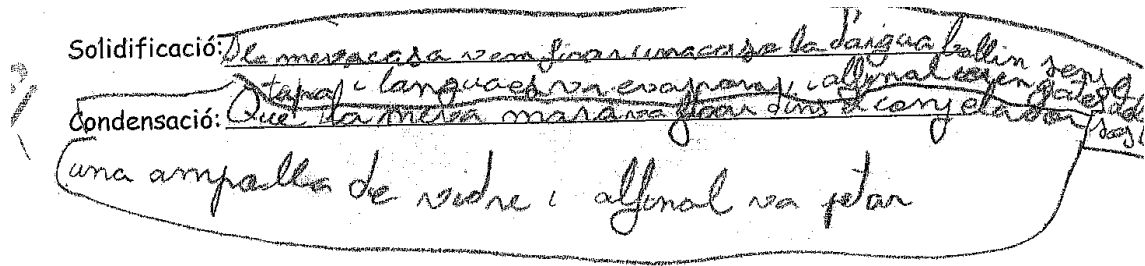 Solidificació: A la meva casa vem ficar una casa la d'aigua bullin sense
tapar i l'angua es va evaporar, i alfinal
Condensació: Que la meva mara va ficar dins el conjelador
una ampolla de vidre i alfinal va petar